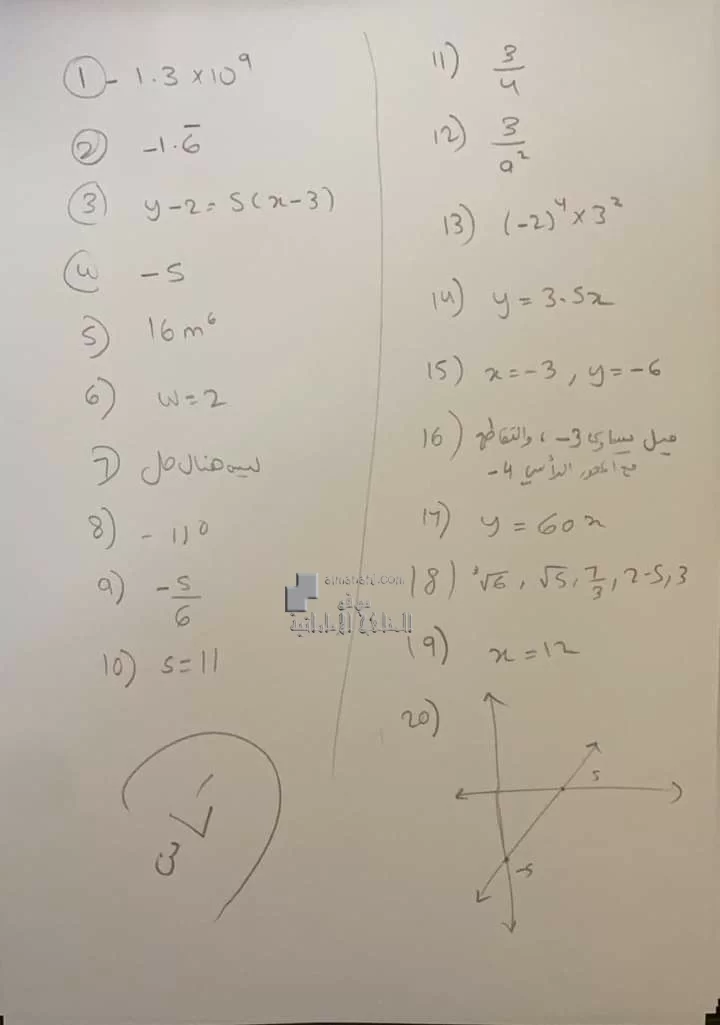 1 - 1.3 × 10⁹
2 -1.6̅
3 y - 2 = 5(x - 3)
4 -5
5) 16 m⁶
6) w = 2
7) ليس هنالك حل
8) - 11⁰
9) -5/6
10) s = 11
11) 3/4
12) 3/a²
13) (-2)⁴ × 3²
14) y = 3.5x
15) x = -3 , y = -6
16) ميل يساوي 3- ، والتقاطع
مع المحور الرأسي 4-
17) y = 60x
18) ³√6 , √5 , 7/3 , 2.5 , 3
19) x = 12
20)
5
-5
almanahj.com
موقع
المناهج الإماراتية